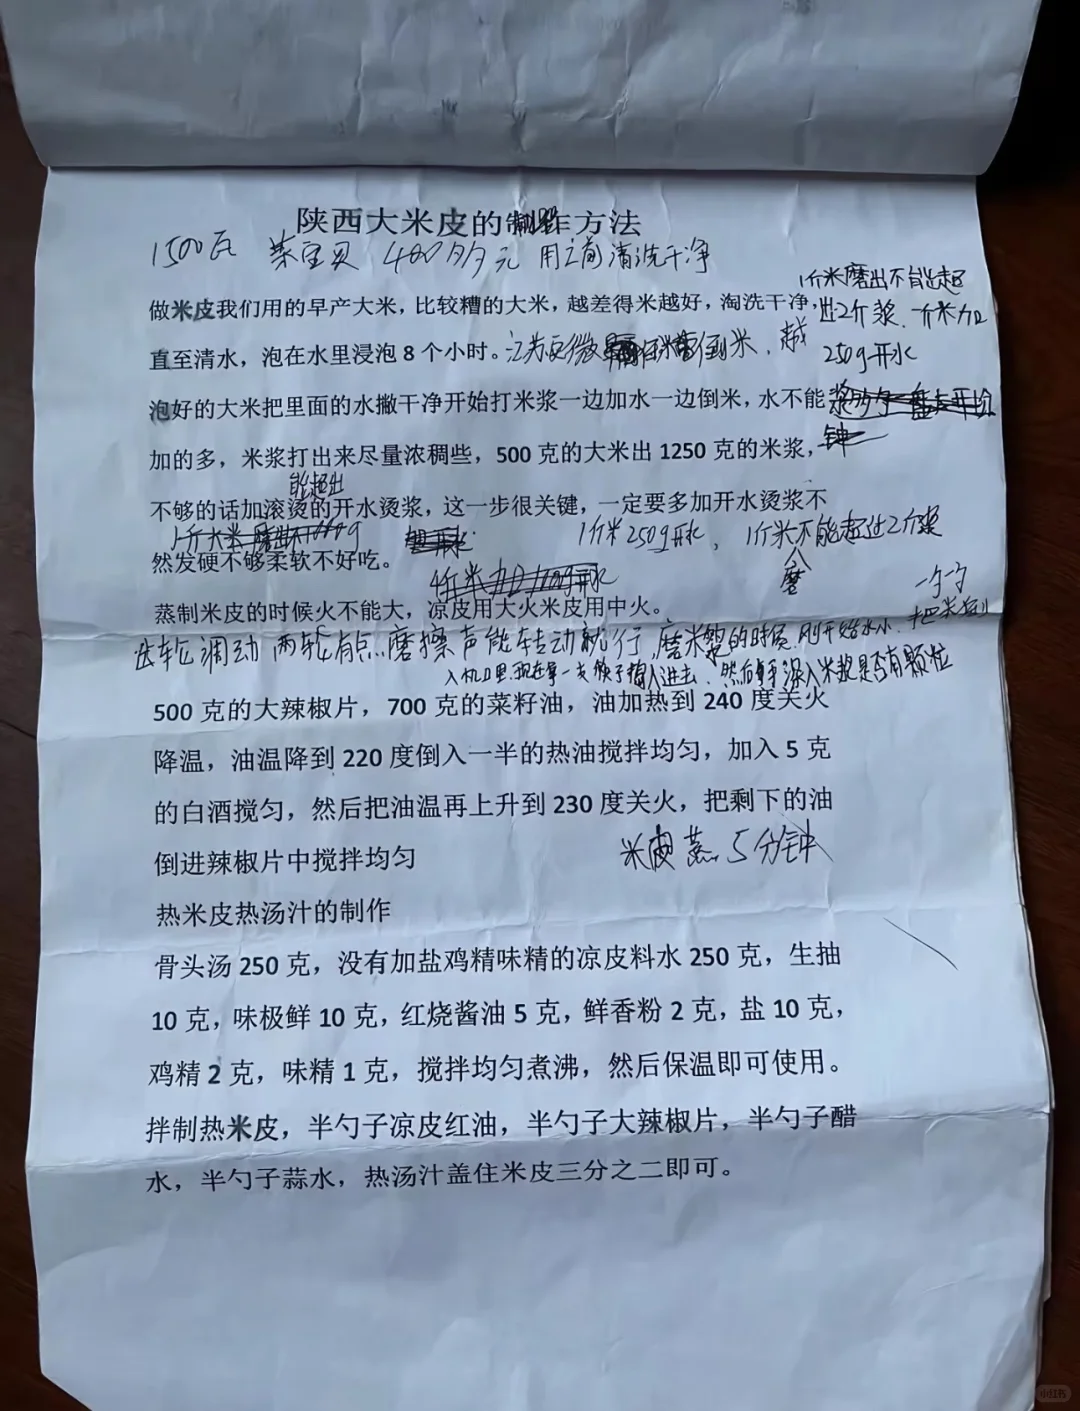 陕西大米皮的制作方法
1500瓦 菜宝贝 400多元 用之前清洗干净
1斤米磨出不能超
做米皮我们用的早产大米，比较糟的大米，越差得米越好，淘洗干净，
出2斤浆、一斤米加
直至清水，泡在水里浸泡 8 个小时。
倒米，越
250g开水
泡好的大米把里面的水撇干净开始打米浆一边加水一边倒米，水不能
加的多，米浆打出来尽量浓稠些，500 克的大米出 1250 克的米浆，
钟
能超出
不够的话加滚烫的开水烫浆，这一步很关键，一定要多加开水烫浆不
1斤大米
1斤米250g开水，1斤米不能超过2斤浆
磨
然发硬不够柔软不好吃。
一勺一勺
蒸制米皮的时候火不能大，凉皮用大火米皮用中火。
把米倒
齿轮调动 两轮有点磨擦声能转动就行，磨米浆的时候，刚开始水小、
入机口里，现在拿一支筷子插入进去，然后，深入米浆是否有颗粒
500 克的大辣椒片，700 克的菜籽油，油加热到 240 度关火
降温，油温降到 220 度倒入一半的热油搅拌均匀，加入 5 克
的白酒搅匀，然后把油温再上升到 230 度关火，把剩下的油
倒进辣椒片中搅拌均匀
米皮蒸5分钟
热米皮热汤汁的制作
骨头汤 250 克，没有加盐鸡精味精的凉皮料水 250 克，生抽
10 克，味极鲜 10 克，红烧酱油 5 克，鲜香粉 2 克，盐 10 克，
鸡精 2 克，味精 1 克，搅拌均匀煮沸，然后保温即可使用。
拌制热米皮，半勺子凉皮红油，半勺子大辣椒片，半勺子醋
水，半勺子蒜水，热汤汁盖住米皮三分之二即可。
小红书